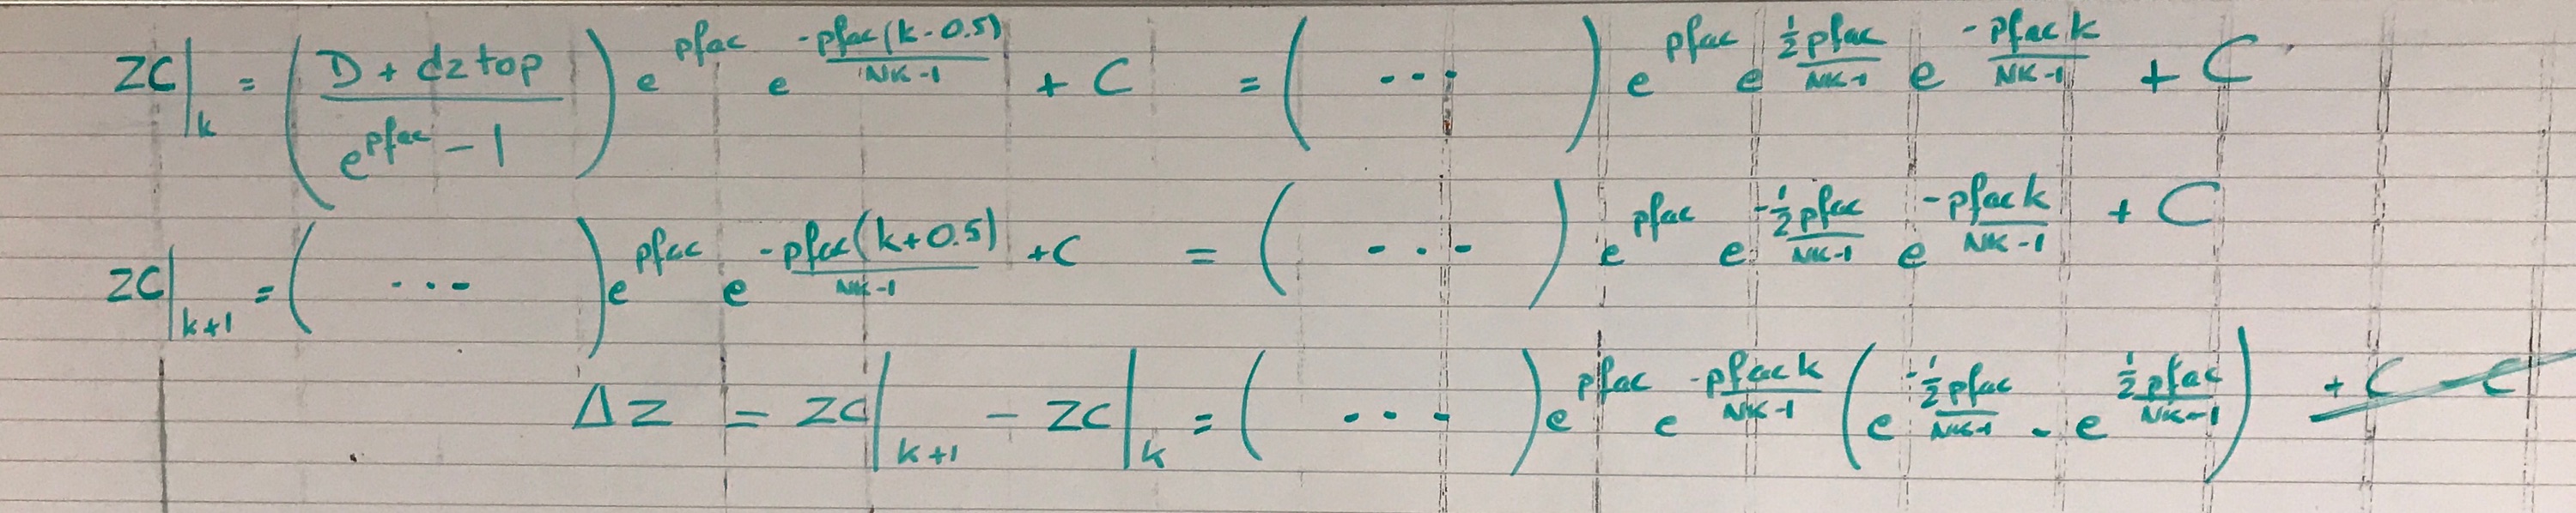 ZC|_k = ( (D + dztop) / (e^pfac - 1) ) e^pfac e^(-pfac(k-0.5)/(NK-1)) + C = ( ... ) e^pfac e^(½pfac/(NK-1)) e^(-pfac k/(NK-1)) + C
ZC|_k+1 = ( ... ) e^pfac e^(-pfac(k+0.5)/(NK-1)) + C = ( ... ) e^pfac e^(-½pfac/(NK-1)) e^(-pfac k/(NK-1)) + C
ΔZ = ZC|_k+1 - ZC|_k = ( ... ) e^pfac e^(-pfac k/(NK-1)) ( e^(-½pfac/(NK-1)) - e^(½pfac/(NK-1)) ) + C - C